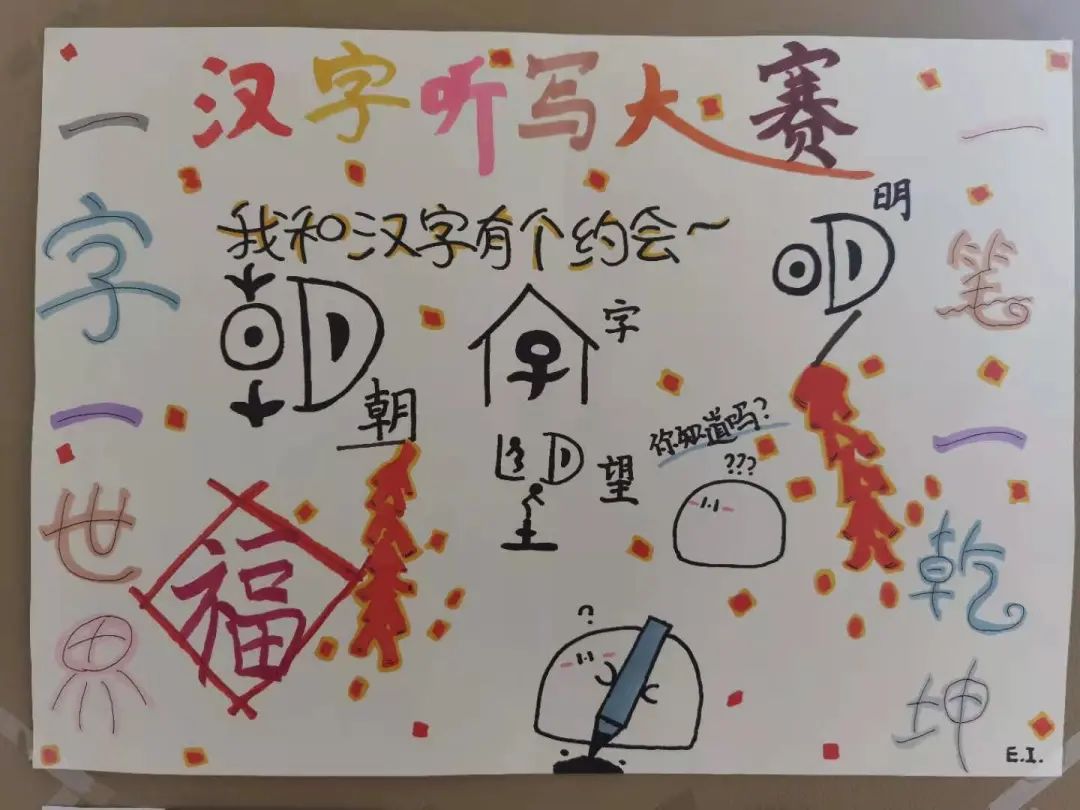 汉字听写大赛
我和汉字有个约会~
一字一世界
一笔一乾坤
明
字
朝
望
你知道吗?
???
福
?
E.I.